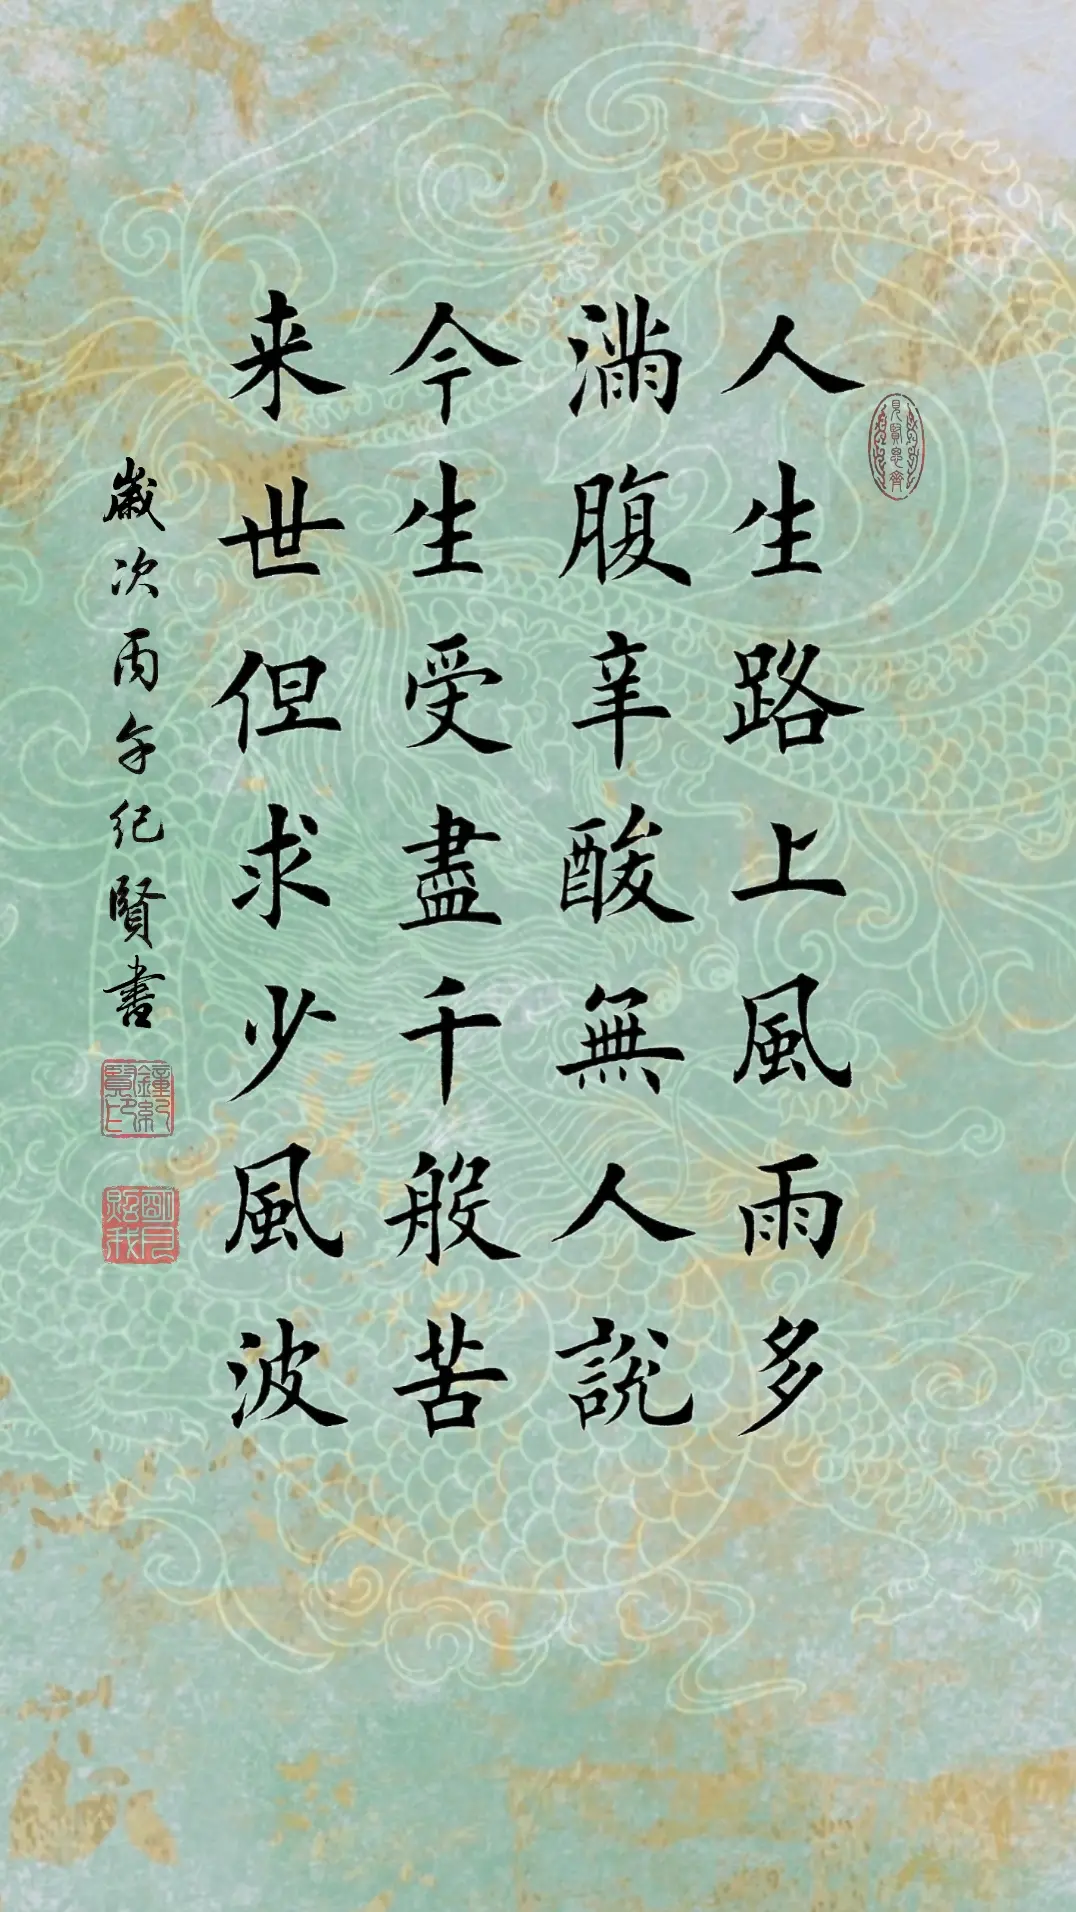 人生路上風雨多
滿腹辛酸無人說
今生受盡千般苦
来世但求少風波
歲次丙午纪賢書
見賢思齊
鐘紀賢印